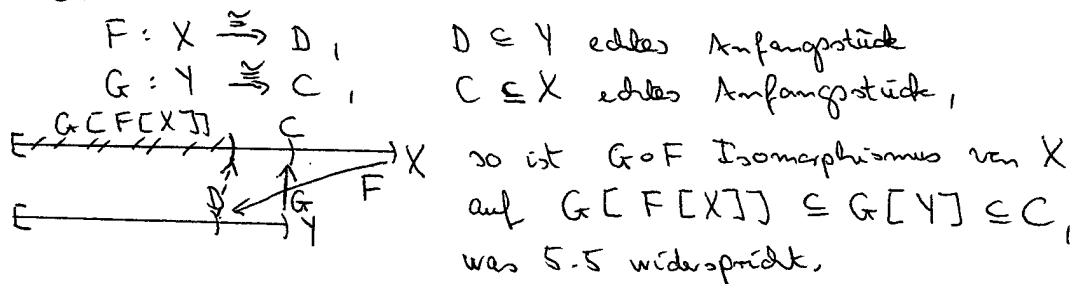 F : X ≅→ D, D ⊆ Y echtes Anfangsstück
G : Y ≅→ C, C ⊆ X echtes Anfangsstück,
G[F[X]] C
X so ist G∘F Isomorphismus von X
D G F
Y auf G[F[X]] ⊆ G[Y] ⊆ C,
was 5.5 widerspricht.